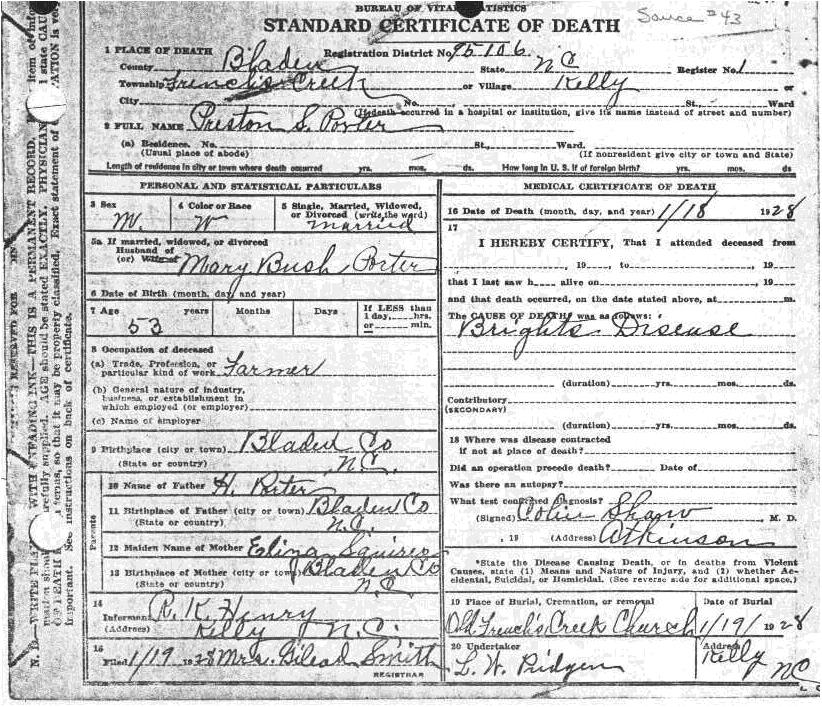 BUREAU OF VITAL STATISTICS
STANDARD CERTIFICATE OF DEATH
Source #43
1 PLACE OF DEATH Registration District No. 95106
County Bladen State NC Register No. 1
Township French's Creek or Village Kelly or
City No. St., Ward
(If death occurred in a hospital or institution, give its name instead of street and number)
2 FULL NAME Preston S. Porter
(a) Residence. No. St., Ward.
(Usual place of abode) (If nonresident give city or town and State)
Length of residence in city or town where death occurred yrs. mos. ds. How long in U. S. if of foreign birth? yrs. mos. ds.
PERSONAL AND STATISTICAL PARTICULARS
3 Sex M. 4 Color or Race W 5 Single, Married, Widowed, or Divorced (write the word) married
5a If married, widowed, or divorced
Husband of
(or) Wife of Mary Bush Porter
6 Date of Birth (month, day, and year)
7 Age 53 years Months Days If LESS than 1 day, hrs. or min.
8 Occupation of deceased
(a) Trade, Profession, or
particular kind of work Farmer
(b) General nature of industry,
business, or establishment in
which employed (or employer)
(c) Name of employer
9 Birthplace (city or town) Bladen Co
(State or country) N.C.
Parents
10 Name of Father H. Porter
11 Birthplace of Father (city or town) Bladen Co
(State or country) N.C.
12 Maiden Name of Mother Eliza Squires
13 Birthplace of Mother (city or town) Bladen Co
(State or country) NC
14
Informant R. K. Henry
(Address) Kelly N.C.
15
Filed 1/19 1928 Mrs. Gilead Smith
REGISTRAR
MEDICAL CERTIFICATE OF DEATH
16 Date of Death (month, day, and year) 1/18 1928
17
I HEREBY CERTIFY, That I attended deceased from
, 19 , to , 19
that I last saw h alive on , 19
and that death occurred, on the date stated above, at m.
The CAUSE OF DEATH* was as follows:
Brights Disease
(duration) yrs. mos. ds.
Contributory
(SECONDARY)
(duration) yrs. mos. ds.
18 Where was disease contracted
if not at place of death?
Did an operation precede death? Date of
Was there an autopsy?
What test confirmed diagnosis?
(Signed) Colin Shaw, M. D.
, 19 (Address) Atkinson
*State the Disease Causing Death, or in deaths from Violent
Causes, state (1) Means and Nature of Injury, and (2) whether Accidental, Suicidal, or Homicidal. (See reverse side for additional space.)
19 Place of Burial, Cremation, or removal Date of Burial
Old French's Creek Church 1/19/ 1928
20 Undertaker Address
L. W. Pridgen Kelly NC
N. B.—WRITE PLAINLY WITH UNFADING INK—THIS IS A PERMANENT RECORD.